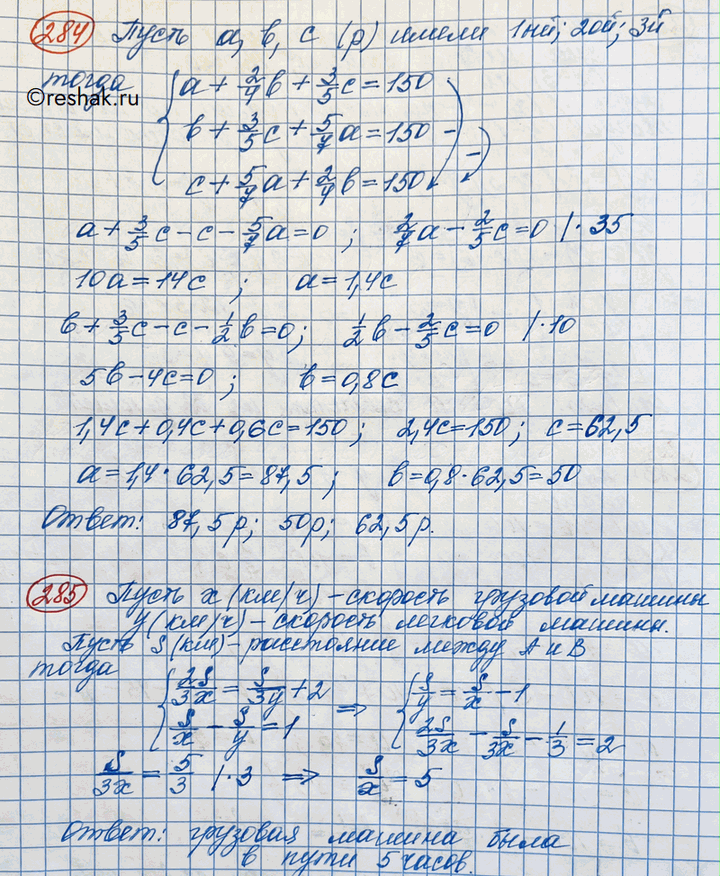 284 Пусть a, b, c (р) имели 1ый; 2ой; 3й
тогда a + 2/4 b + 3/5 c = 150
©reshak.ru
b + 3/5 c + 5/7 a = 150 -
c + 5/7 a + 2/4 b = 150 -
a + 3/5 c - c - 5/7 a = 0 ; 2/7 a - 2/5 c = 0 /· 35
10a = 14c ; a = 1,4c
b + 3/5 c - c - 1/2 b = 0 ; 1/2 b - 2/5 c = 0 /·10
5b - 4c = 0 ; b = 0,8c
1,4c + 0,4c + 0,6c = 150 ; 2,4c = 150 ; c = 62,5
a = 1,4 · 62,5 = 87,5 ; b = 0,8 · 62,5 = 50
Ответ: 87,5р; 50р; 62,5р.
285 Пусть x (км/ч) - скорость грузовой машины
y (км/ч) - скорость легковой машины.
Пусть S (км) - расстояние между A и B
тогда
2S/3x = S/3y + 2 => S/y = S/x - 1
S/x - S/y = 1 2S/3x - S/3x - 1/3 = 2
S/3x = 5/3 /· 3 => S/x = 5
Ответ: грузовая машина была
в пути 5 часов.